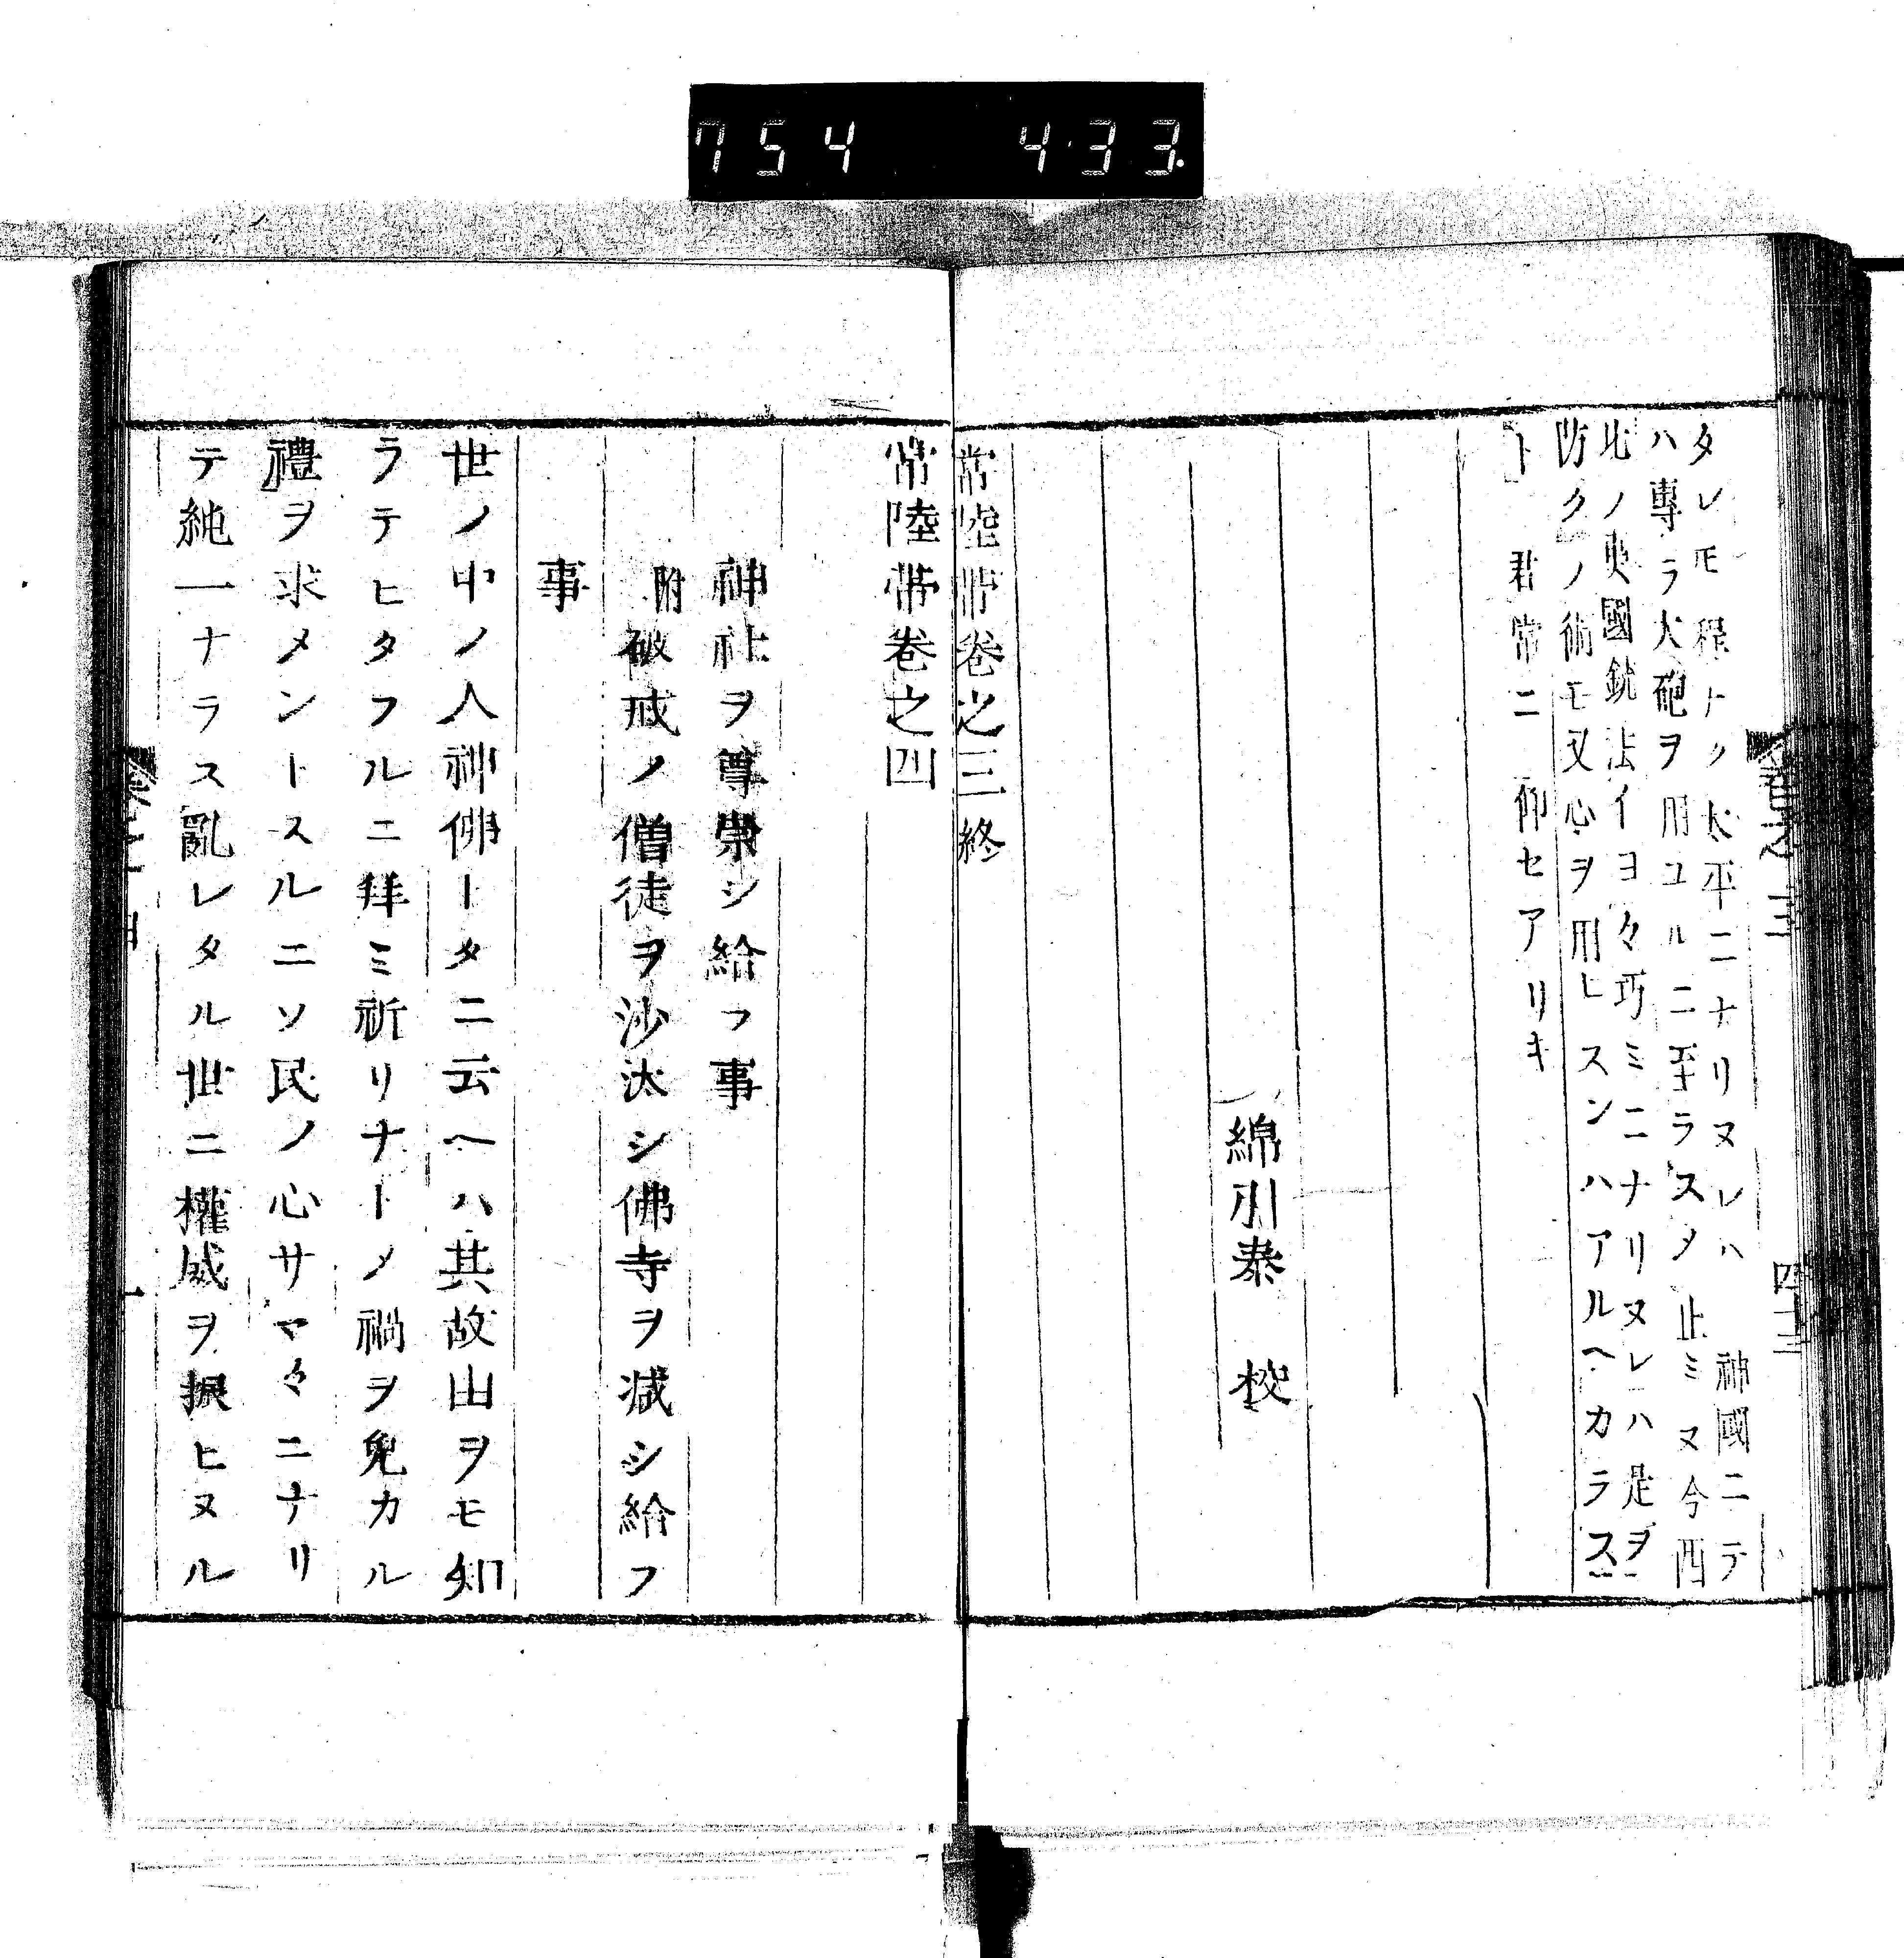 754 433.
タレモ程ナク太平ニナリヌレハ　神國ニテ
ハ專ラ大砲ヲ用ユルニ至ラスメ止ミヌ今西
北ノ夷國銃法イヨ々巧ミニナリヌレハ是ヲ
防クノ術モ又心ヲ用ヒスンハアルヘカラス
ト　君常ニ　仰セアリキ
綿引泰　校
常陸帶卷之三終
常陸帶卷之四
神社ヲ尊崇シ給フ事
附破戒ノ僧徒ヲ沙汰シ佛寺ヲ减シ給フ
事
世ノ中ノ人神佛トタニ云ヘハ其故由ヲモ知
ラテヒタフルニ拜ミ祈リナトメ禍ヲ免カル
禮ヲ求メントスルニソ民ノ心サマ々ニナリ
テ純一ナラス亂レタル世ニ權威ヲ振ヒヌル
卷之三
四十三